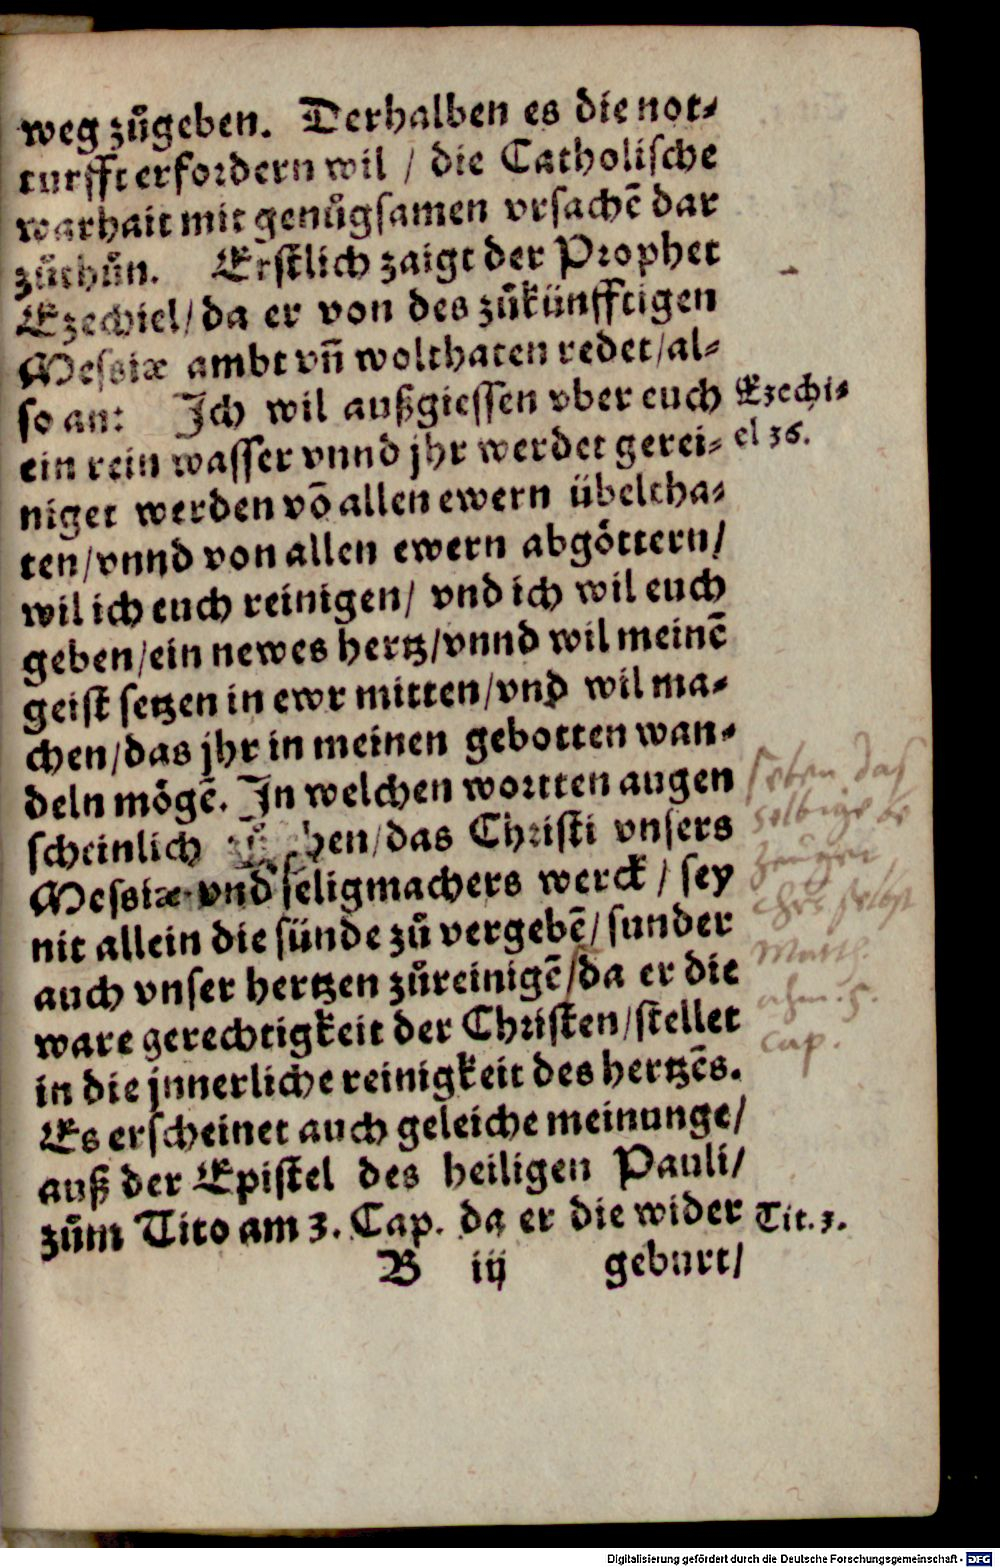 weg zůgeben. Derhalben es die not⸗
turfft erfordern wil / die Catholische
warhait mit genůgsamen vrsachẽ dar
zůthůn. Erstlich zaigt der Prophet
Ezechiel/ da er von des zůkünfftigen
Messiæ ambt vñ wolthaten redet/al⸗
so an: Ich wil außgiessen vber euch
Ezechi⸗
ein rein wasser vnnd jhr werdet gerei⸗
el 36.
niget werden võ allen ewern übeltha⸗
ten/vnnd von allen ewern abgöttern/
wil ich euch reinigen/ vnd ich wil euch
geben/ein newes hertz/vnnd wil meinẽ
geist setzen in ewr mitten/vnd wil ma⸗
chen/das jhr in meinen gebotten wan⸗
deln mögẽ. In welchen wortten augen
scheinlich /das Christi vnsers
Messiæ vnd seligmachers werck / sey
nit allein die sünde zů vergebẽ/ sunder
auch vnser hertzen zůreinigẽ/da er die
ware gerechtigkeit der Christen/stellet
in die jnnerliche reinigkeit des hertzẽs.
Es erscheinet auch geleiche meinunge/
auß der Epistel des heiligen Pauli/
zům Tito am 3. Cap. da er die wider
Tit. 3.
B iij geburt/
das
selbige
selbst
Matth.
5.
cap.
Digitalisierung gefördert durch die Deutsche Forschungsgemeinschaft - DFG